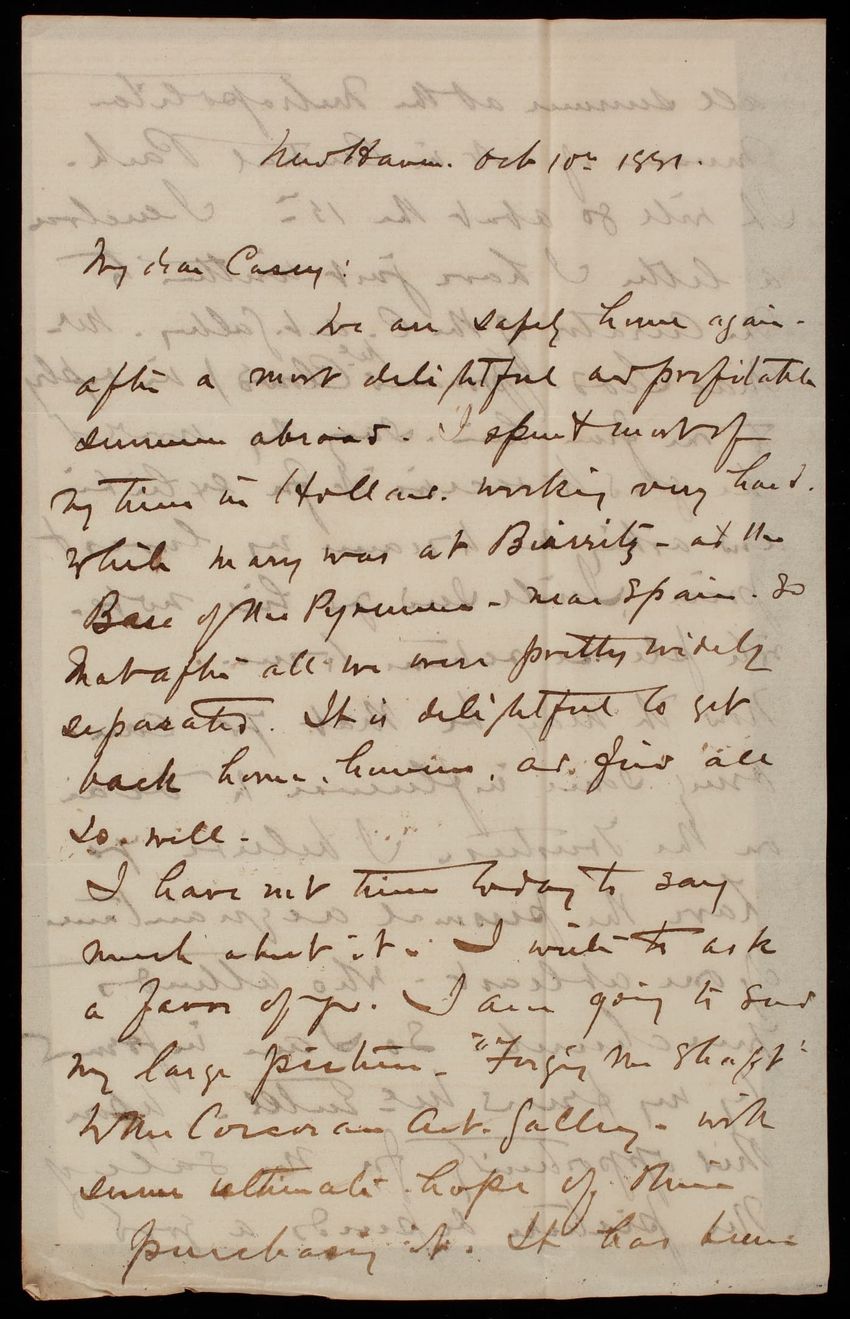 New Haven. Oct 10th 1881.
My dear Casey:
We are safely home again -
after a most delightful and profitable
summer abroad. I spent most of
my time in Holland. working very hard.
while Mary was at Biarritz - at the
Base of the Pyrenees - near Spain. So
that after all we were pretty widely
separated. It is delightful to get
back home, however, and find all
so well -
I have not time today to say
much about it. I write to ask
a favor of you. I am going to send
my large picture - "Forging the Shaft"
to the Corcoran Art. Gallery - with
some ultimate hope of their
purchasing it. It has been